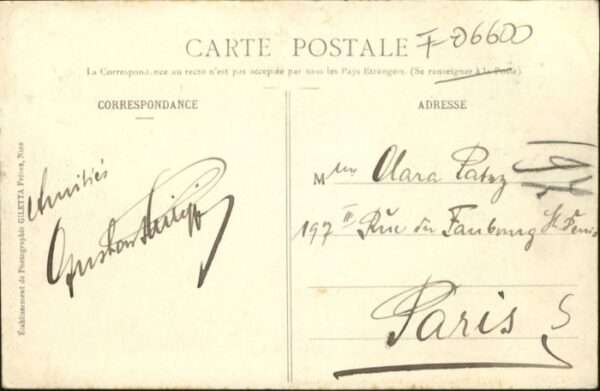 CARTE POSTALE
F-06600
La Correspondance au recto n'est pas acceptée par tous les Pays Etrangers. (Se renseigner à la Poste)
CORRESPONDANCE
Amitiés
Établissement de Photographie GILETTA Frères, Nice
ADRESSE
M Clara
197 Rue du Faubourg St Denis
Paris